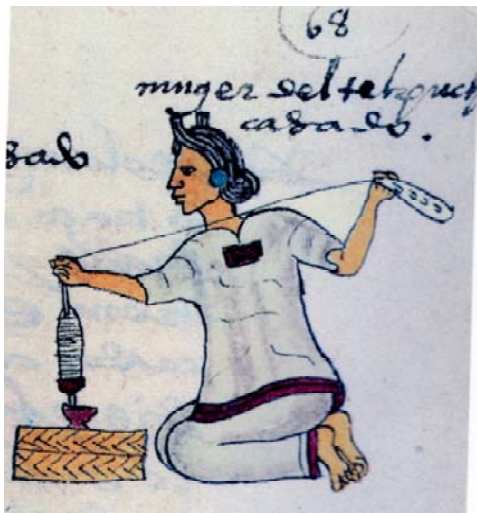 68
muger del telpuch
sado
casado.